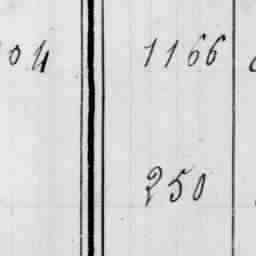 04 1166
250